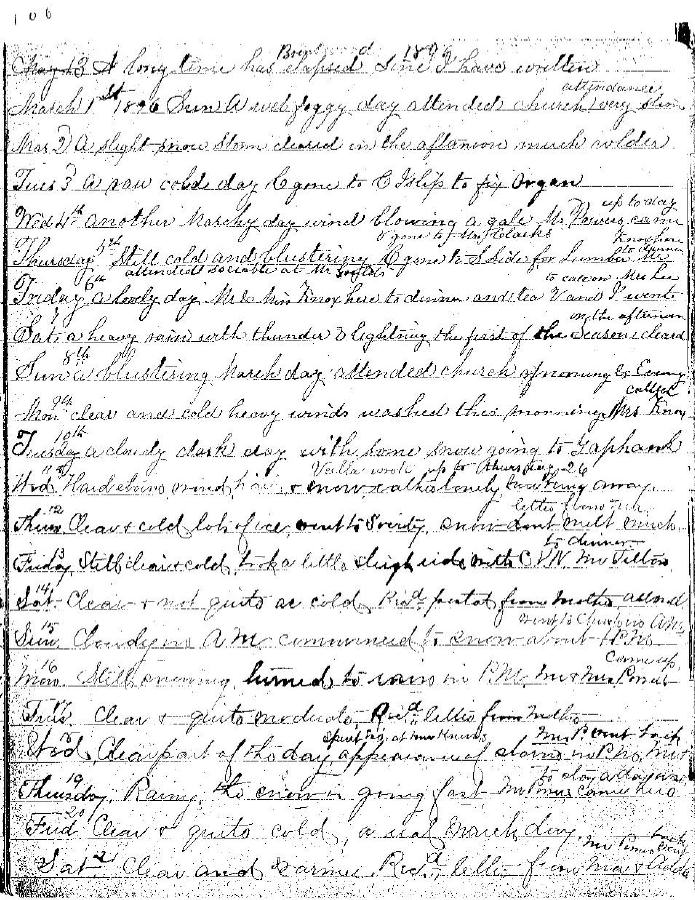 106
Brentwood 1896
May 13 A long time has elapsed since I have written
attendance
March 1st 1896 Sun A wet foggy day attended church very slim
Mar 2 A slight snow storm cleared in the afternoon much colder
Tues 3 a raw cold day C gone to C Islip to fix Organ
up to day
Wed 4th another Marchy day wind blowing a gale Mr Powers came
gone to Mrs Clarks Knox here to dinner
Thursday 5th Still cold and blustering C gone to S Side for Lumber Mr
attended sociable at Mr
6th to call on Mrs Lee
Friday a lovely day Mr & Mrs Knox here to dinner and tea V and I went
7 in the afternoon
Sat a heavy rain with thunder & lightning the first of the season cleard
8th
Sun a blustering March day attended church morning & Evening
9th called
Mon clear and cold heavy winds washed this morning Mrs Knox
10th
Tuesday a cloudy dark day with some snow going to Laphams
Vella wrote up to Thursday 26
11
Wed Hard storm wind rain & snow rather lonely away
12 letter from
Thurs Clear & cold lots of ice, went to Society, snow dont melt much
13 to dinner
Friday Still clear & cold, took a little sleigh ride with C V N. Mr Tilton
14
Sat Clear & not quite as cold Rec'd postal from Mother
15 went to Church in AM
Sun Cloudy in A.M. commenced to snow about 1 P.M.
16 Came up
Mon. Still snowing, turned to rain in P.M. Mr & Mrs Powers
17
Tues Clear & quite moderate, Rec'd letter from Mother
18 spent Eg. at Mr Knox's Mr P went back
Wed, Clear part of the day appearance of storm in P.M. Mr &
19 to stay a day or so
Thursday, Rainy, the snow is going fast Mrs Powers came here
20
Frid Clear & quite cold, a real March day. Mr Powers
21
Sat Clear and warmer Rec'd letter from Ma & Adda